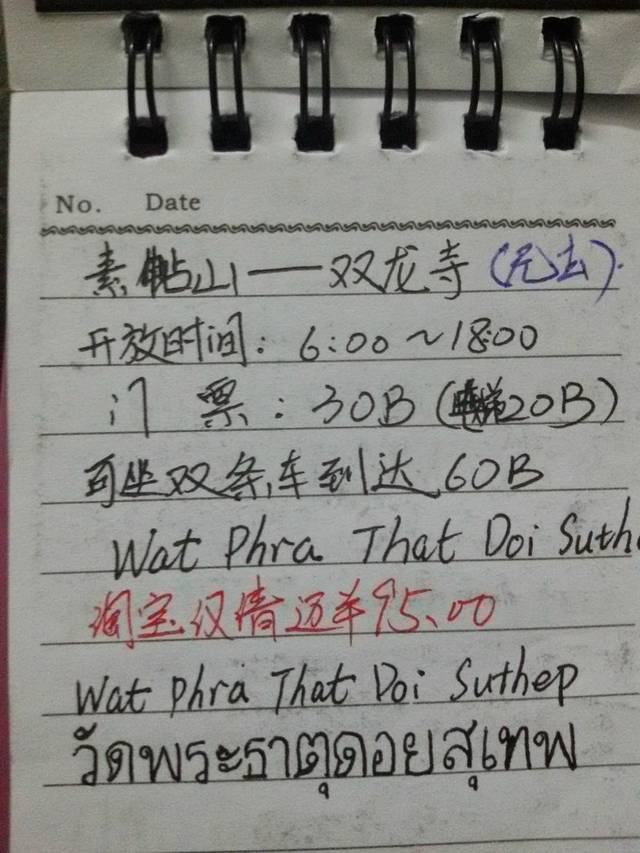 No. Date
素帖山——双龙寺 (元去).
开放时间: 6:00~18:00
门票: 30B (电梯20B)
可坐双条车到达 60B
Wat Phra That Doi Suth
淘宝 清迈 95.00
Wat Phra That Doi Suthep
วัดพระธาตุดอยสุเทพ